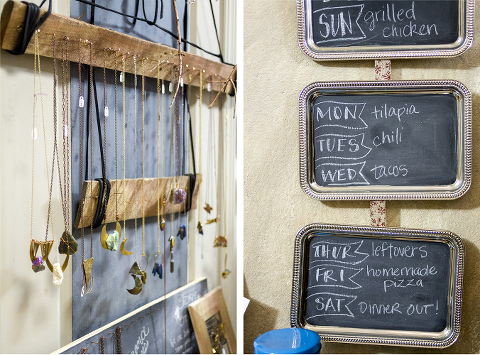 SUN grilled
chicken
MON tilapia
TUES chili
WED tacos
THUR leftovers
FRI homemade
pizza
SAT DINNER OUT!